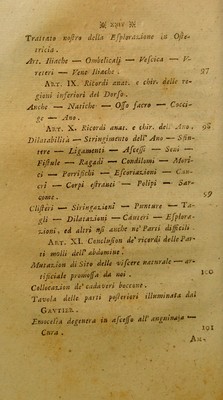 ※ XXIV ※
Trattato nostro della Esplorazione in Oste-
tricia.
Art. Iliache — Ombelicali — Vescica — U-
reteri — Vene Iliache. 97
ART. IX. Ricordi anat. e chir. delle re-
gioni inferiori del Dorso.
Anche — Natiche — Osso sacro — Cocci-
ge — Ano.
ART. X. Ricordi anat. e chir. dell' Ano. 98
Dilatabilità — Stringimento dell' Ano — Sfin-
tere — Ligamenti — Ascessi — Seni —
Fistule — Ragadi — Condilomi — Mori-
ci — Porrifichi — Escoriazioni — Can-
cri — Corpi estranei — Polipi — Sar-
come. 59
Clisteri — Siringazioni — Punture — Ta-
gli — Dilatazioni — Cancri — Esplora-
zioni, ed altri usi anche ne' Parti difficili.
ART. XI. Conclusion de' ricordi delle Par-
ti molli dell' abdomine.
Mutazion di Siro delle viscere naturale — ar-
tificiale promossa da noi. 100
Collocazion de' cadaveri boccone.
Tavola delle parti posteriori illuminata dai
GAUTIER.
Enocelia degenera in ascesso all' anguinaja —
Cura. 101
An-